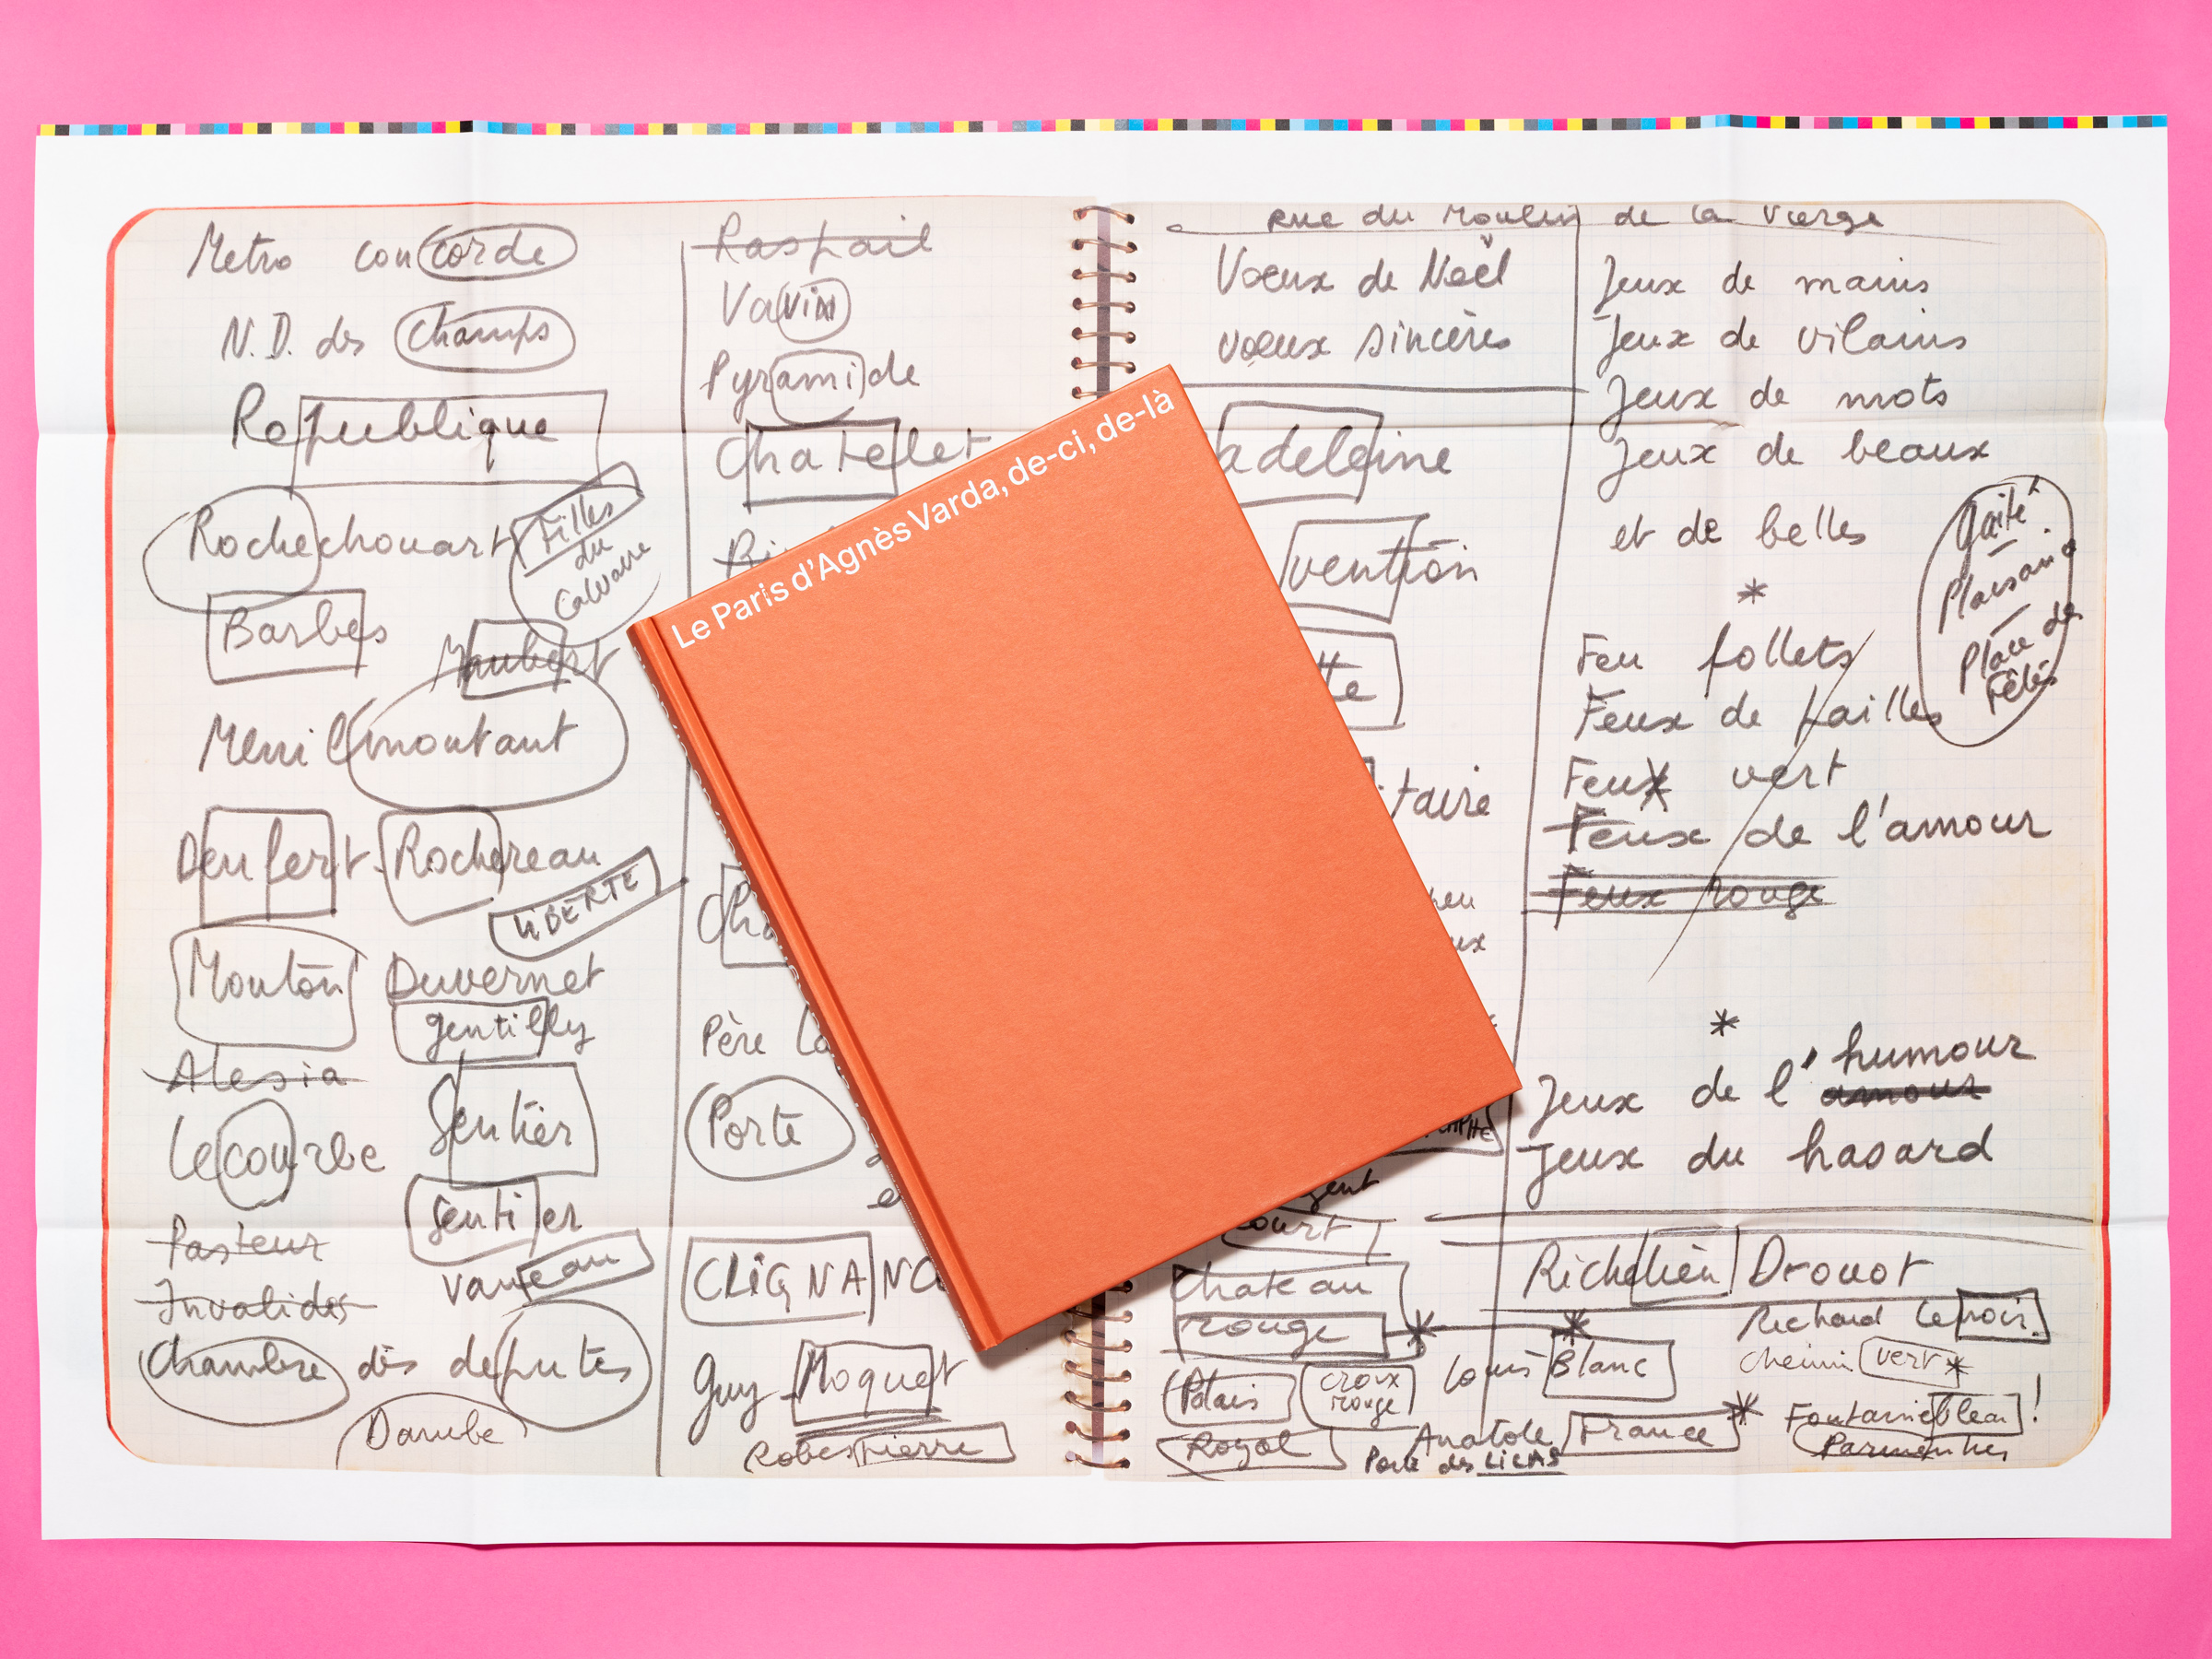 Le Paris d'Agnès Varda, de-ci, de-là
Metro concorde
N.D. des champs
Republique
Rochechouart
Filles
du
Calvaire
Barbes
Maubert
Menilmontant
Denfert-Rochereau
LIBERTE
Mouton Duvernet
gentilly
Alesia
Sentier
Lecourbe
Sentier
Pasteur
Vaneau
Invalides
Chambre des deputes
Danube
Raspail
Vavin
Pyramide
Chatellet
Père
Porte
CLIGNANC
Guy-Moquet
Robespierre
Rue du Moulin de la Vierge
Vœux de Noël
vœux sincères
adeleine
vention
tte
taire
court
Chateau
rouge
Palais
Royal
croix
rouge
Louis Blanc
Anatole France
Porte des LILAS
Jeux de mains
Jeux de vilains
Jeux de mots
Jeux de beaux
et de belles
*
Gaité
Place des
Fêtes
Feu follets
Feux de pailles
Feux vert
Feux de l'amour
Feux rouge
*
Jeux de l'humour
amour
Jeux du hasard
Richelieu Drouot
Richard Lenoir
chemin vert *
Fontainebleau!
Parmentier